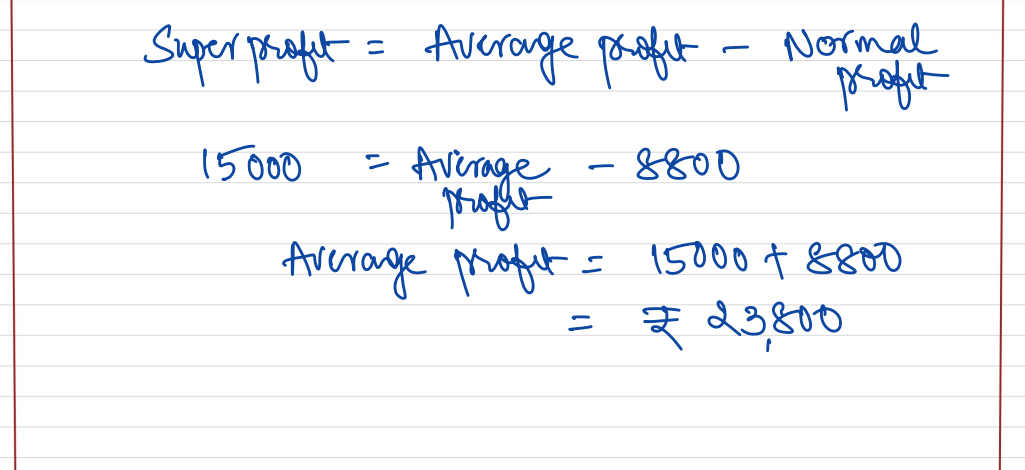 Super profit = Average profit - Normal
profit
15000 = Average - 8800
profit
Average profit = 15000 + 8800
= ₹ 23,800